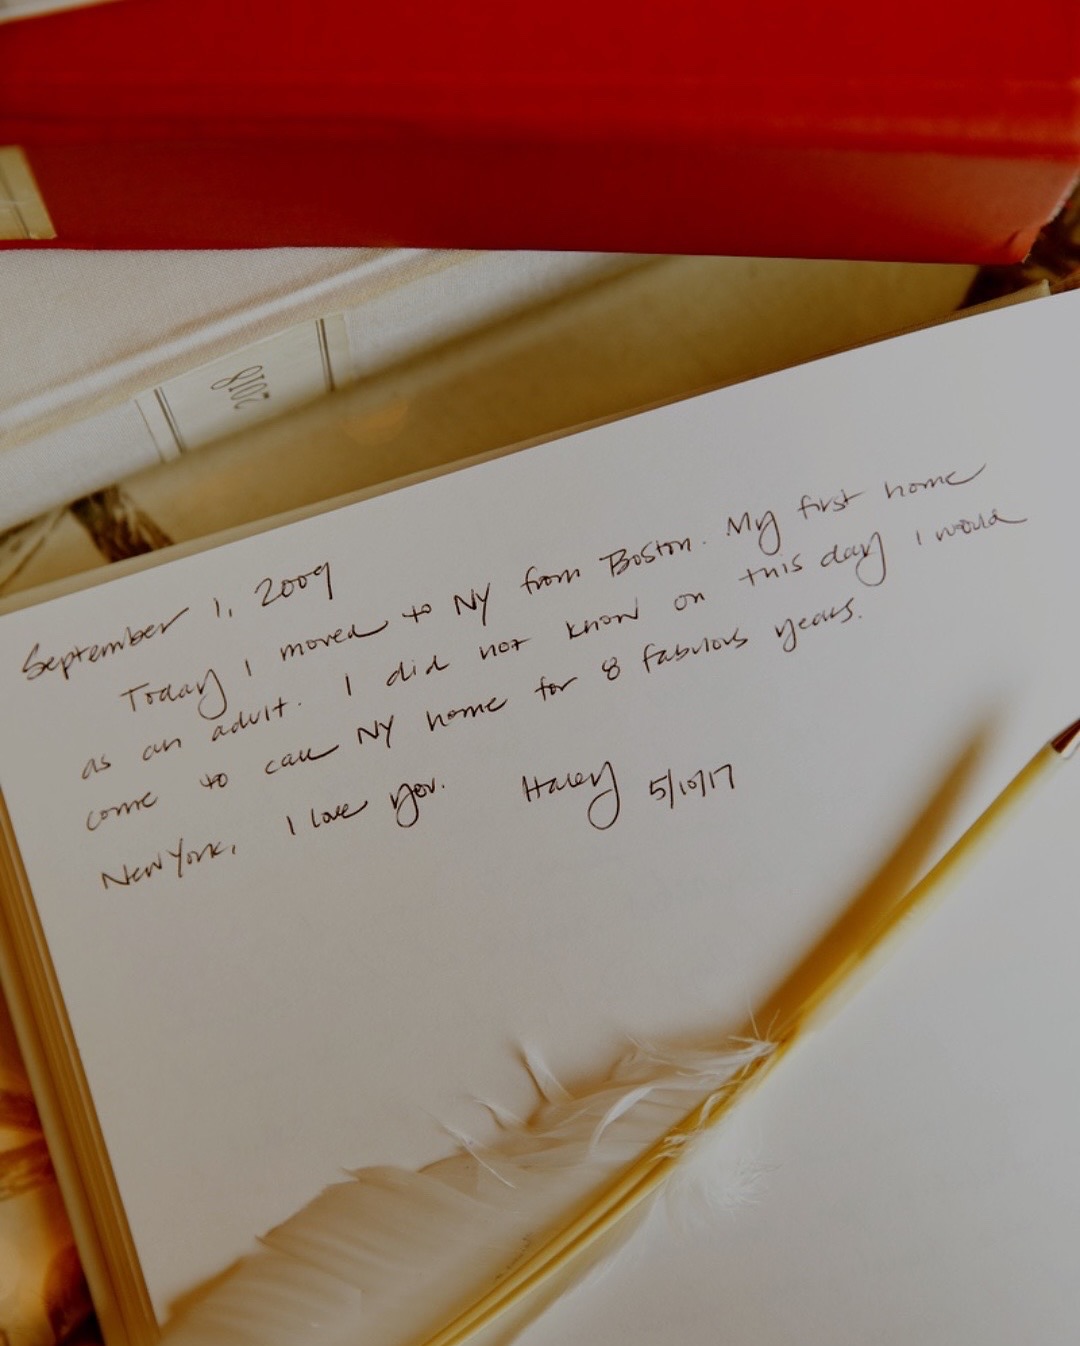 2018
September 1, 2009
Today I moved to NY from Boston. My first home
as an adult. I did not know on this day I would
come to call NY home for 8 fabulous years.
New York, I love you. Haley 5/10/17